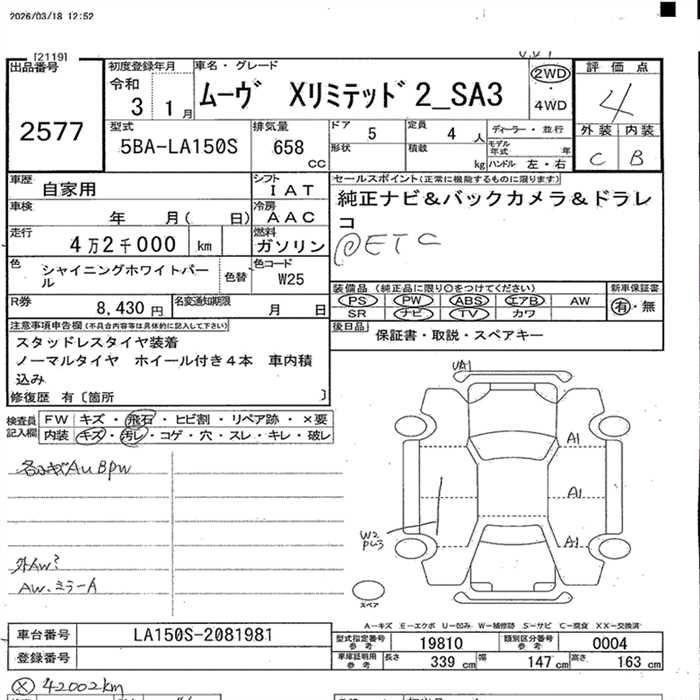 2026/03/18 12:52
[2119]
出品番号
2577
初度登録年月
令和
3 1月
車名・グレード
ムーヴ Xリミテッド2_SA3
2WD
・
4WD
評価点
4
外装 内装
C B
型式
5BA-LA150S
排気量
658
CC
ドア 5
形状
定員 4 人
積載 kg
ディーラー・並行
モデル年式 年
ハンドル 左・右
車歴
自家用
シフト
IAT
車検
年 月( 日)
冷房
AAC
走行
4万2千000 km
燃料
ガソリン
色
シャイニングホワイトパール
色替
色コード
W25
R券
8,430 円
名変通知期限
月 日
セールスポイント(正常に機能するものに限ります)
純正ナビ&バックカメラ&ドラレ
コ
@ETC
装備品 (純正品に限り○をつけてください)
PS PW ABS エアB AW
SR ナビ TV カワ
新車保証書
有・無
後日品
保証書・取説・スペアキー
注意事項申告欄(不具合内容等は具体的に記入して下さい)
スタッドレスタイヤ装着
ノーマルタイヤ ホイール付き4本 車内積
込み
修復歴 有〔箇所 〕
検査員
記入欄
FW キズ・飛石・ヒビ割・リペア跡・×要
内装 キズ・汚レ・コゲ・穴・スレ・キレ・破レ
各小キズAUBPW
外AW?
AW、ミラーA
UA1
A1
A1
A1
W2
PL3
スペア
A-キズ E-エクボ U-凹み W-補修跡 S-サビ C-腐食 XX-交換済
車台番号
LA150S-2081981
登録番号
型式指定番号
参考
19810
類別区分番号
参考
0004
車庫証明用
参考
長さ 339 cm 幅 147 cm 高さ 163 cm
Ⓧ 42002km